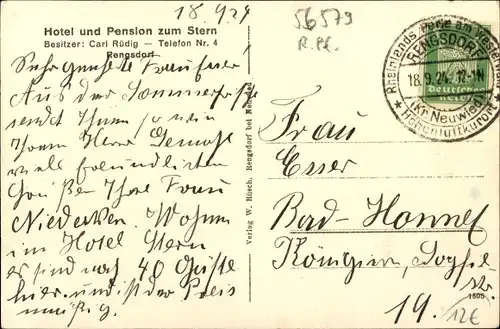 18.9.24
56579
R.Pf.
Hotel und Pension zum Stern
Besitzer: Carl Rüdig — Telefon Nr. 4
Rengsdorf
Rheinlands Perle am Westerwald
RENGSDORF
18.9.24. 12-1N
(Kr. Neuwied)
* Höhenluftkurort *
Deutsches Reich
Sehr geehrte Frau
Aus der Sommerfrische
sendet Ihnen so wie
Ihrem Herrn Gemahl
viele freundlichen
Grüßen Ihre Frau
Wohne
im Hotel Stern
es sind noch 40 Gäste
hier. und ist der Preis
mäßig.
Verlag W. Rüsch, Rengsdorf bei Neuwied
Frau
Esser
Bad-Honnef
Königin Sophie
str.
19.
1505
12€